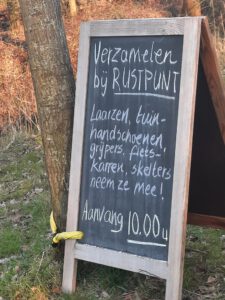 Verzamelen
bij RUSTPUNT
Laarzen, tuin-
handschoenen,
grijpers, fiets-
karren, skelters
neem ze mee!
Aanvang 10.00u